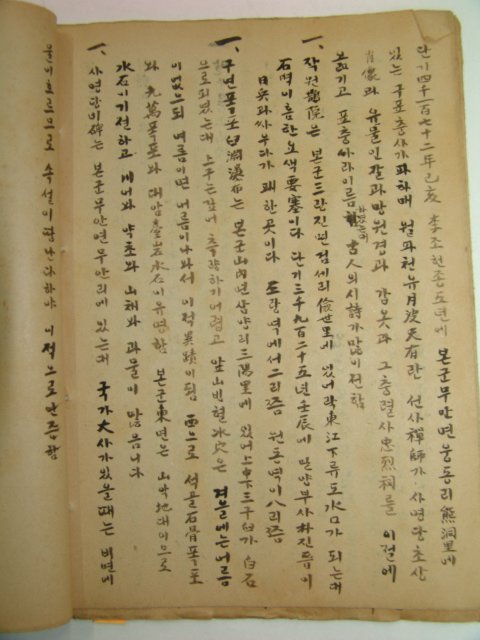 단기四千一百七十二年己亥 李조헌종五년에 본군무안면웅동리熊洞里에
있는 구표충사가파하매 월파천유月波天有란 선사禪師가 사명당초상
肖像과 유물인갈과망원경과 감옷과 그충렬사忠烈祠를 이전에
옴기고 표충싸라이름 古人의시詩가많이전함
一、작원鵲院는 본군三란진면검세리儉世里에 있어락東江下류도水口가 되는대
石벽이름한노색要塞이다 단기三千九百二十五년壬辰에 밀양부사朴진등이
日兵과싸우다가 패한곳이다 도랑역에서二리즘 원동역이八리즘
一、구연폭포臼淵瀑布는 본군山內면삼양리三陽里에 있어上中下三구臼가 白石
으로되였는대 上구는깊어 측량하기어렵고 앞山빙혈氷穴은 겨울에는어름
이없으되 여름이면 어름이나와서 이적異蹟이됨 西으로 석골石骨폭포
와 九萬폭포와 대암臺岩水石이유명함 본군東면는 山악地대이으로
水石이기절하고 대나와 약초와 山채와 과물이 많음니다
一、사면당비碑는 본군무안면무안리에 있는대 국가大사가있을때는 비면에
물이흐르므로 속설이황난다하야 이적으로만즘함